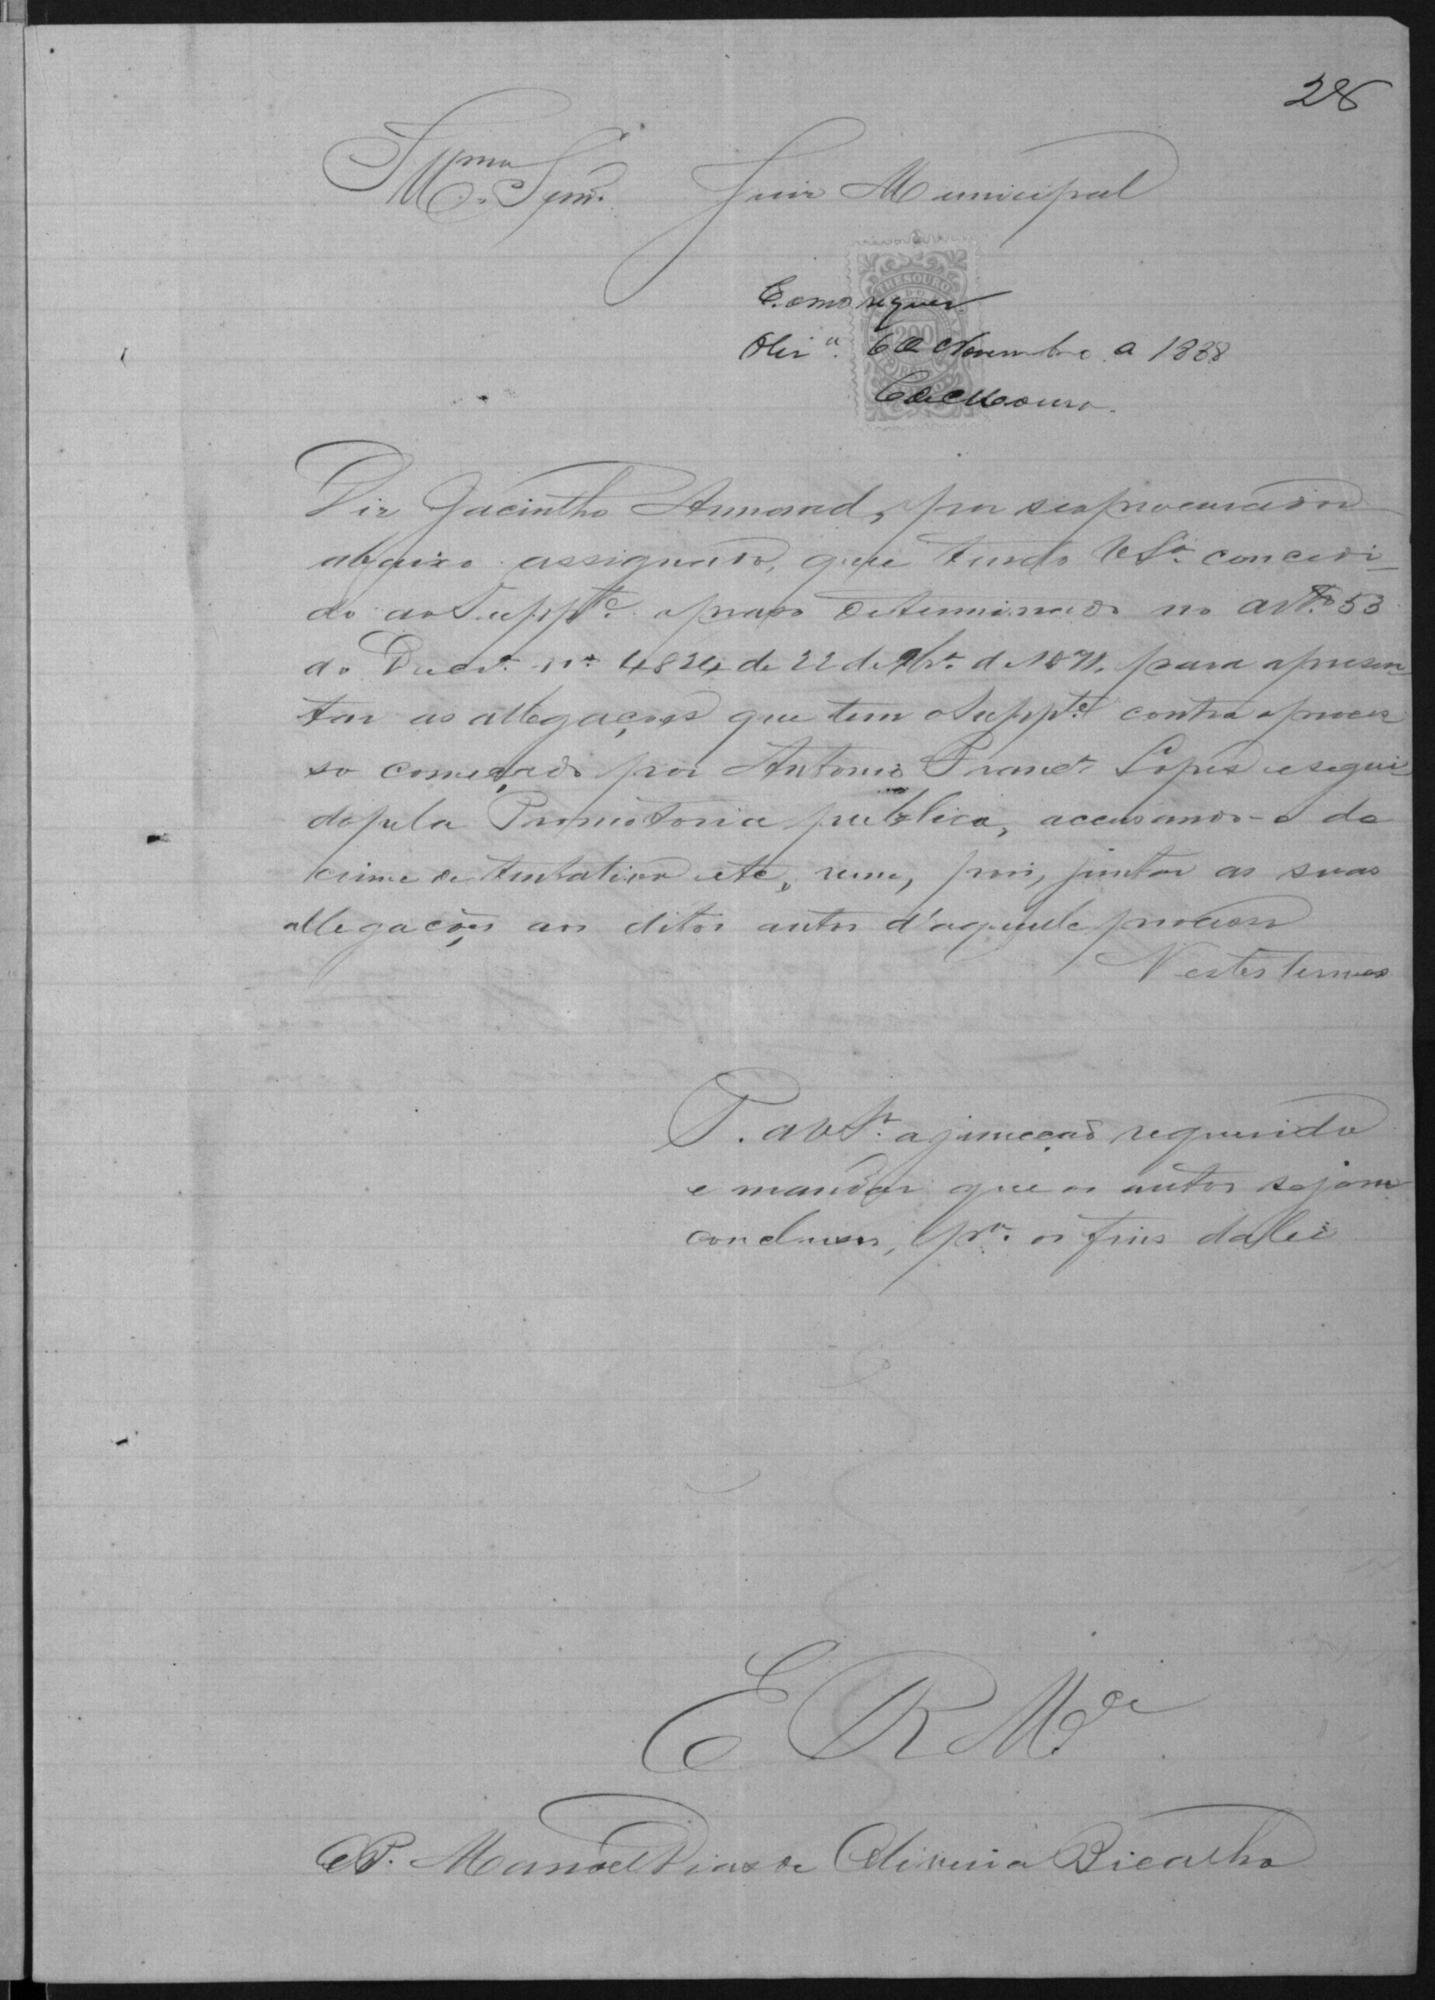 28
Illmo Snr. Juiz Municipal
THESOURO
200
Como requer
Olivª. 6 de Novembro de 1888
C de Moura.
Diz Jacintho Armond, por seo procurador
abaixo assignado, que tendo VSª. concedi-
do ao Suppte. o praso determinado no artº 53
do Decrº. nº 4824 de 22 de 9brº. de 1871, para apresen
tar as allegações que tem o Suppte. contra o proces
so começado por Antonio Francº. Lopes e segui
do pela Promotoria publica, accusando-o do
crime de tentativa etc, vem, pois, juntar as suas
allegações aos ditos autos d'aquele processo
Nestes termos
P. a VSª. a juncção requerida
e mandar que os autos sejam
conclusos, prª. os fins da lei
E R Mce
O P. Manoel Dias de Oliveira Bicalho